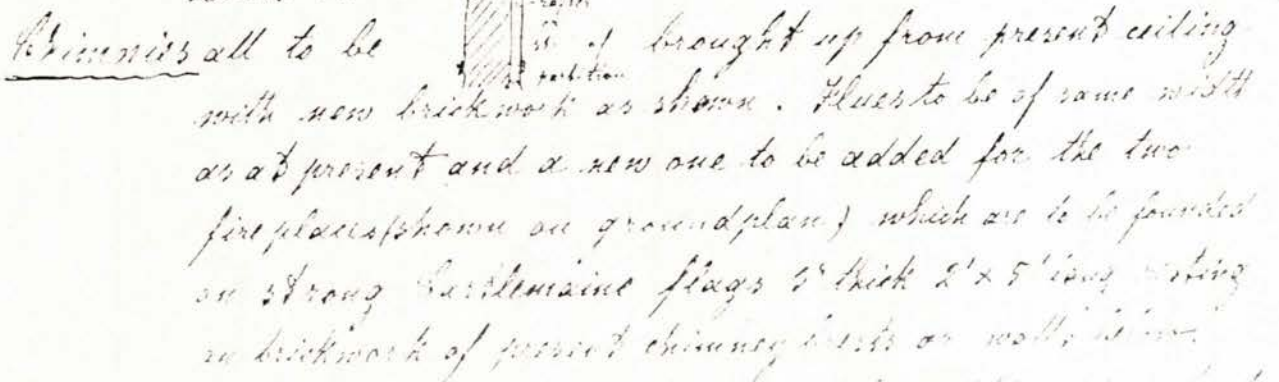 Chimnies all to be brought up from present ceiling
with new brickwork as shown. Flues to be of same width
as at present and a new one to be added for the two
fire places (shown on groundplan) which are to be founded
on strong Castlemaine flags 3" thick 2' x 5' long resting
on brickwork of present chimney brests or walls below.
partition